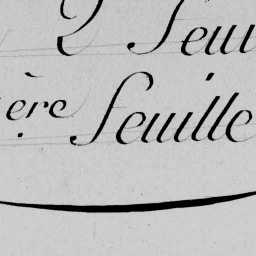 2 Feui
ère Feuille